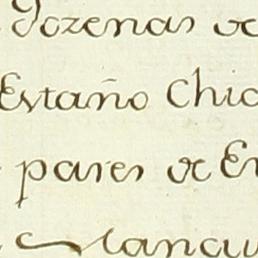 Dozenas de
Estaño Chic
pares de En